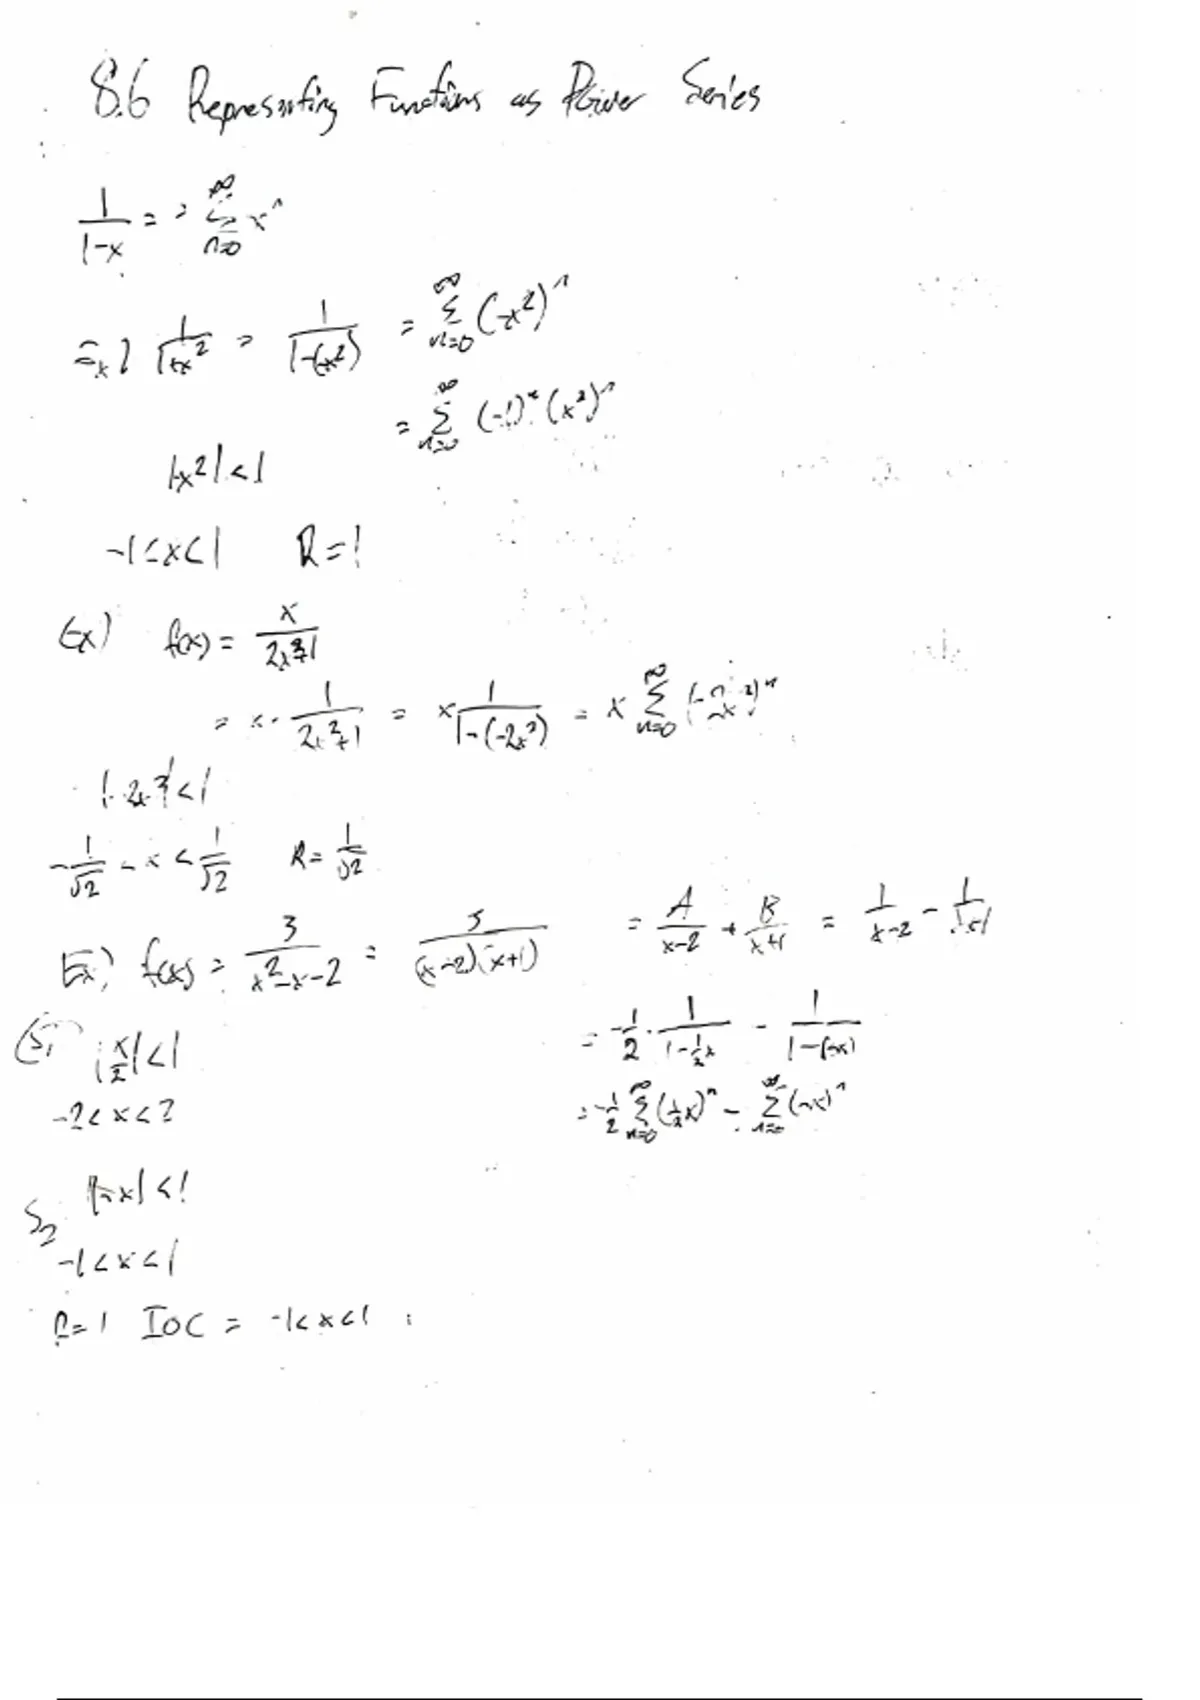 8.6 Representing Functions as Power Series
1/(1-x) = = ∞ Σ n=0 x^n
Ex) 1/(1+x^2) = 1/(1-(-x^2)) = ∞ Σ n=0 (-x^2)^n
= ∞ Σ n=0 (-1)^n (x^2)^n
|-x^2| < 1
-1 < x < 1 R = 1
Ex) f(x) = x/(2x^2+1)
= x · 1/(2x^2+1) = x 1/(1-(-2x^2)) = x ∞ Σ n=0 (-2x^2)^n
|-2x^2| < 1
-1/√2 < x < 1/√2 R = 1/√2
Ex) f(x) = 3/(x^2-x-2) = 3/((x-2)(x+1)) = A/(x-2) + B/(x+1) = 1/(x-2) - 1/(x+1)
= -1/2 · 1/(1-1/2x) - 1/(1-(-x))
= -1/2 ∞ Σ n=0 (1/2x)^n - ∞ Σ n=0 (-x)^n
S1 |x/2| < 1
-2 < x < 2
S2 |-x| < 1
-1 < x < 1
R = 1 IOC = -1 < x < 1